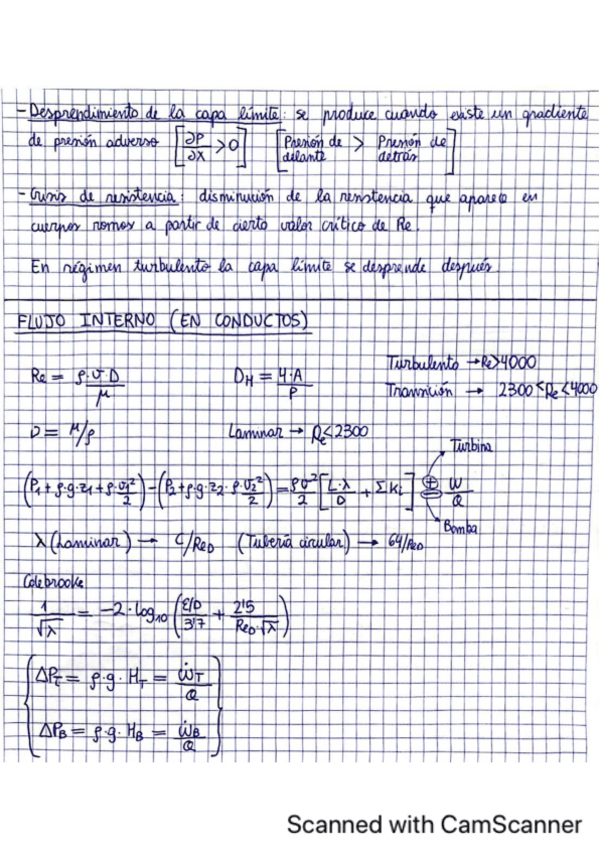 - Desprendimiento de la capa límite: se produce cuando existe un gradiente
de presión adverso [∂P/∂X > 0] [Presión de delante > Presión de detrás]
- Crisis de resistencia: disminución de la resistencia que aparece en
cuerpos romos a partir de cierto valor crítico de Re.
En régimen turbulento la capa límite se desprende después.
FLUJO INTERNO (EN CONDUCTOS)
Re = ρ·v·D/μ D_H = 4·A/P Turbulento → Re>4000
Transición → 2300<Re<4000
ν = μ/ρ Laminar → Re<2300
Turbina
(P1 + ρ·g·z1 + ρ·v1²/2) - (P2 + ρ·g·z2 · ρ·v2²/2) = ρv²/2 [L·λ/D + ΣKi] ± W/Q
Bomba
λ (Laminar) → C/ReD (Tubería circular) → 64/ReD
Colebrooke
1/√λ = -2·log10 (ε/D/3'7 + 2'5/ReD·√λ)
ΔPt = ρ·g·HT = ẆT/Q
ΔPB = ρ·g·HB = ẆB/Q
Scanned with CamScanner